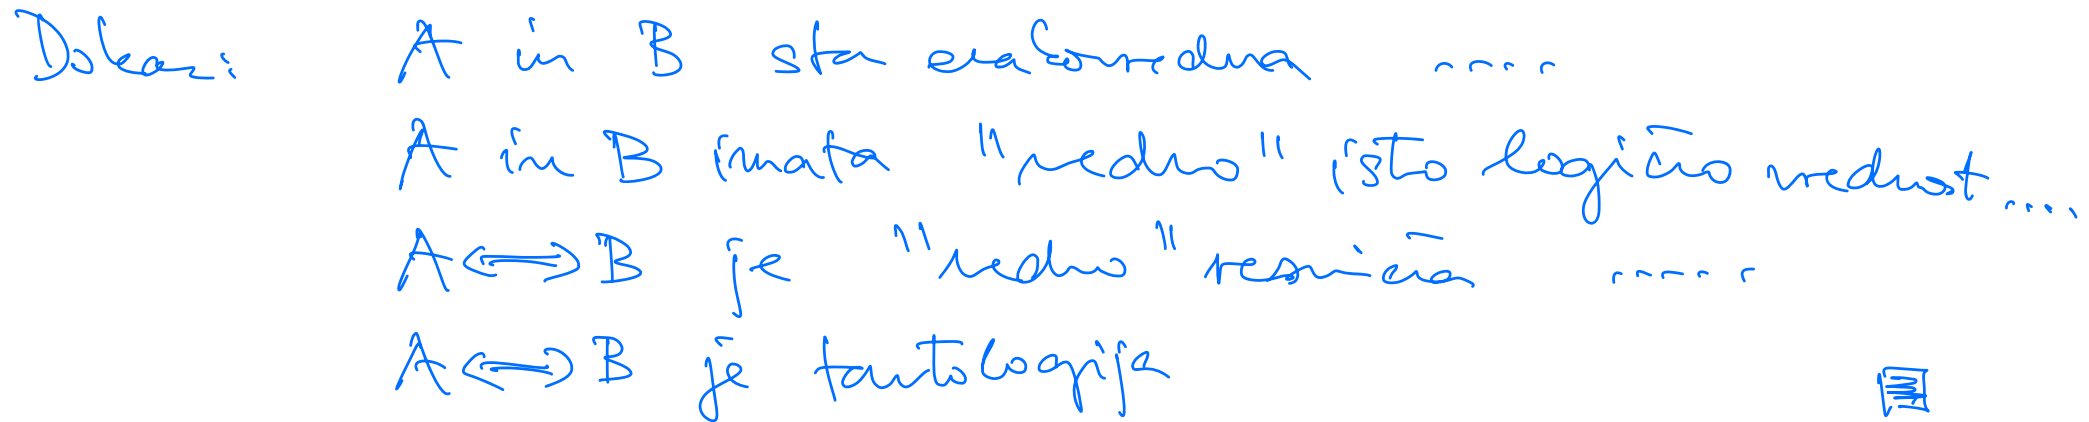 Dokaz: A in B sta enakovredna ....
A in B imata "vedno" isto logično vrednost ....
A ⇔ B je "vedno" resnična .....
A ⇔ B je tautologija